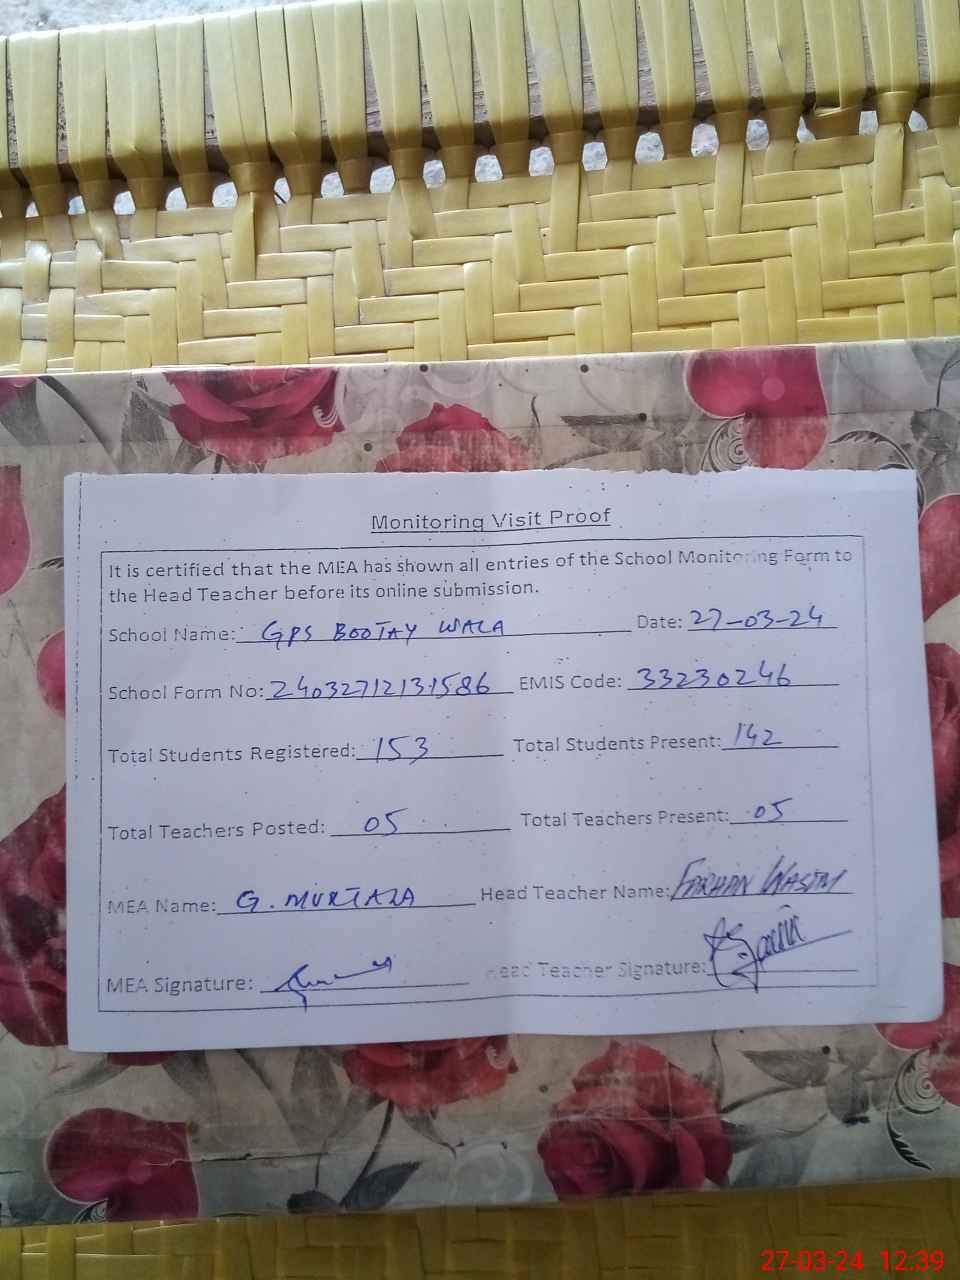 Monitoring Visit Proof
It is certified that the MEA has shown all entries of the School Monitoring Form to
the Head Teacher before its online submission.
School Name: GPS BOOTAY WALA Date: 27-03-24
School Form No: 24032712131586 EMIS Code: 33230246
Total Students Registered: 153 Total Students Present: 142
Total Teachers Posted: 05 Total Teachers Present: 05
MEA Name: G. MURTAZA Head Teacher Name: FARHAN WASIM
MEA Signature: Head Teacher Signature:
27-03-24 12:39